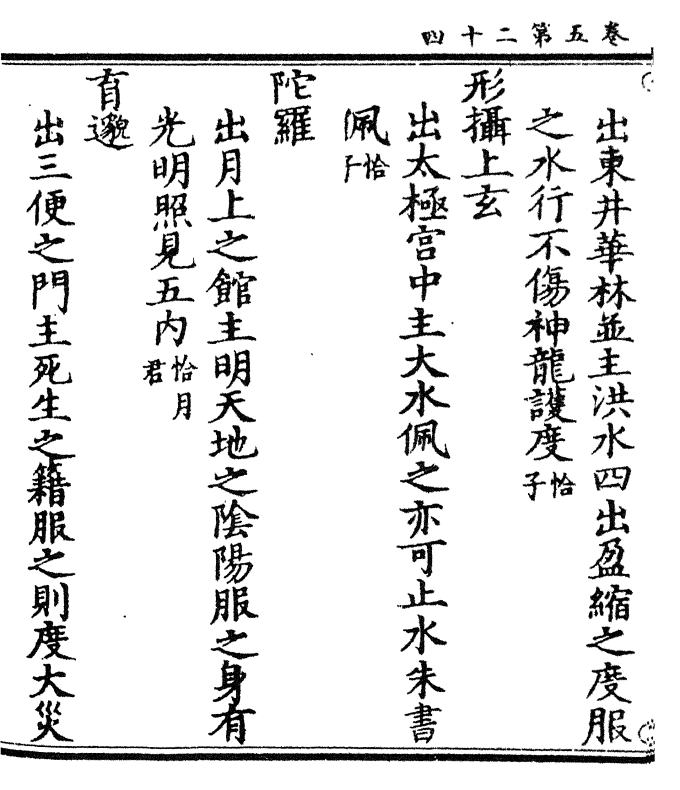 卷五第二十四
出東井華林並主洪水四出盈縮之度服
之水行不傷神龍護度恰子
形攝上玄
出太極宮中主大水佩之亦可止水朱書
佩恰子
陀羅
出月上之館主明天地之陰陽服之身有
光明照見五内恰月君
育邈
出三便之門主死生之籍服之則度大災